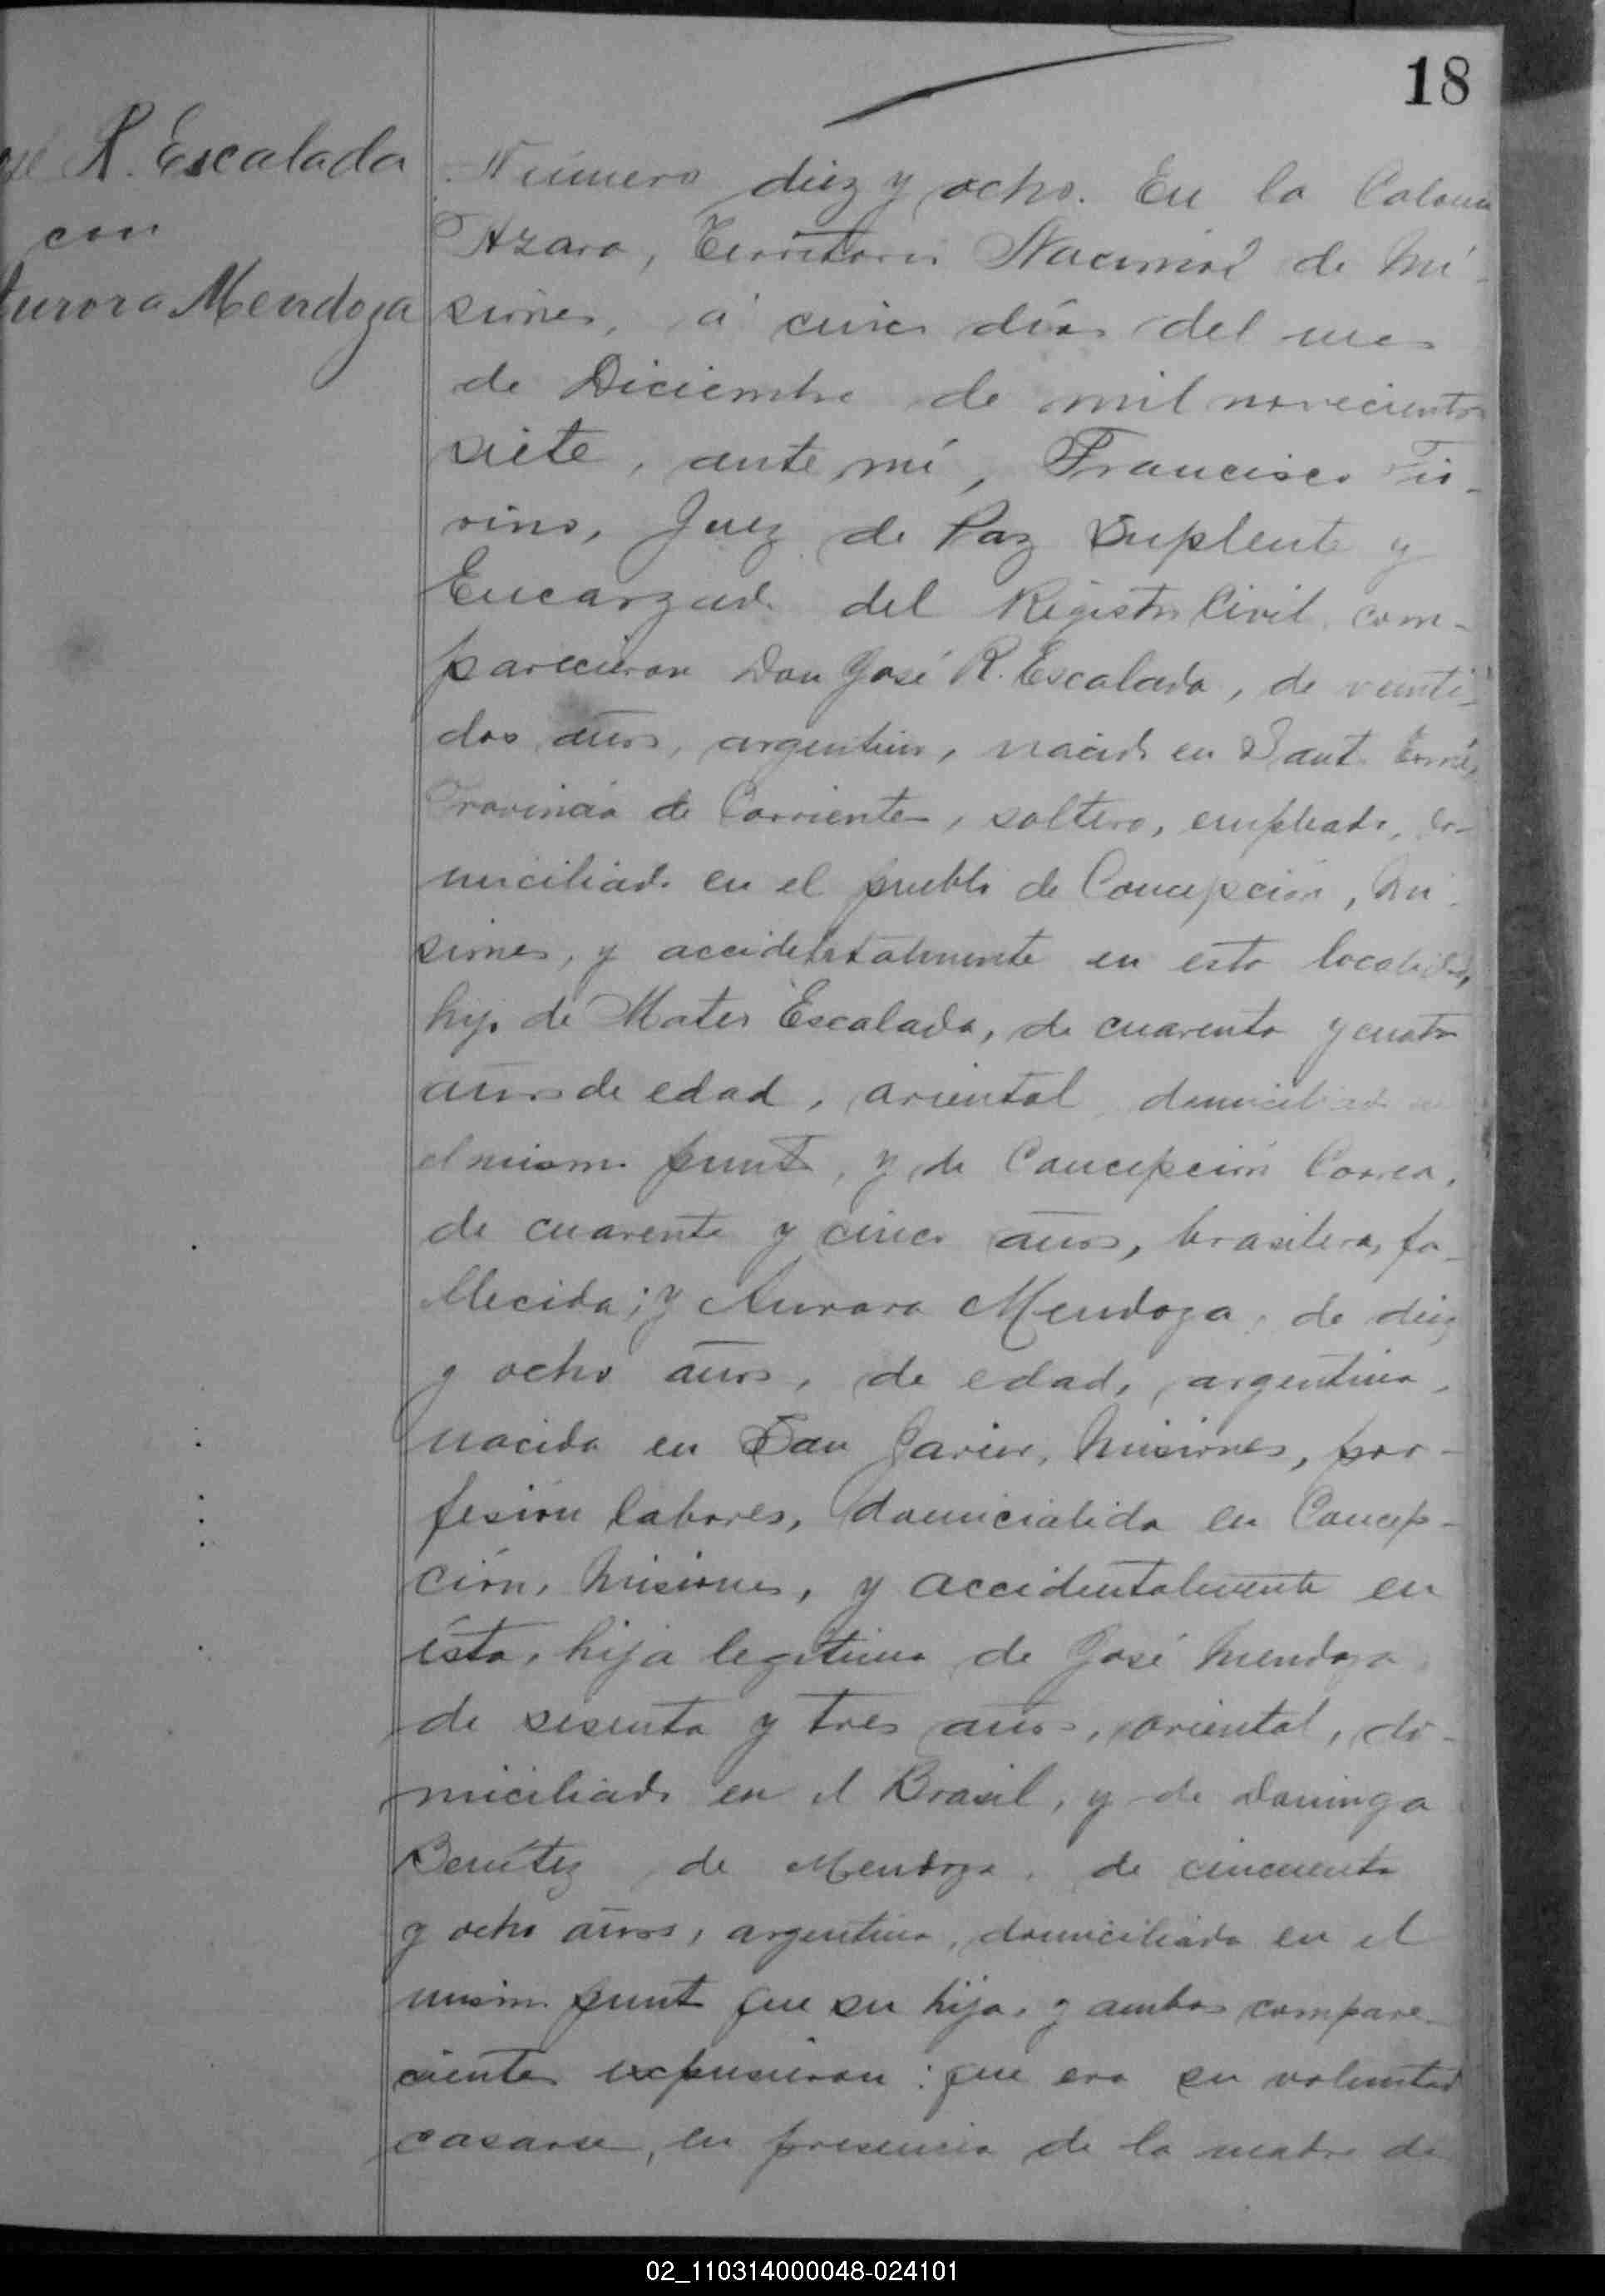 18
R. Escalada
con
Aurora Mendoza
Número diez y ocho. En la Colonia
Azara, Territorio Nacional de Mi-
siones, á cinco días del mes
de Diciembre de mil novecientos
siete, ante mí, Francisco
rino, Juez de Paz Suplente y
Encargado del Registro Civil com-
parecieron Don José R. Escalada, de veinti-
dos años, argentino, nacido en Santo Tomé,
Provincia de Corrientes, soltero, empleado, do-
miciliado en el pueblo de Concepción, Mi-
siones, y accidentalmente en esta localidad,
hijo de Mateo Escalada, de cuarenta y cuatro
años de edad, oriental, domiciliado en
el mismo punto, y de Concepción Correa,
de cuarenta y cinco años, brasilera, fa-
llecida; y Aurora Mendoza, de diez
y ocho años, de edad, argentina,
nacida en San Javier, Misiones, pro-
fesión labores, domicialida en Concep-
ción, Misiones, y accidentalmente en
ésta, hija legítima de José Mendoza
de sesenta y tres años, oriental, do-
miciliado en el Brasil, y de Dominga
Benítez de Mendoza, de cincuenta
y ocho años, argentina, domiciliada en el
mismo punto que su hija, y ambos compare-
cientes expusieron: que era su voluntad
casarse, en presencia de la madre de
02_110314000048-024101